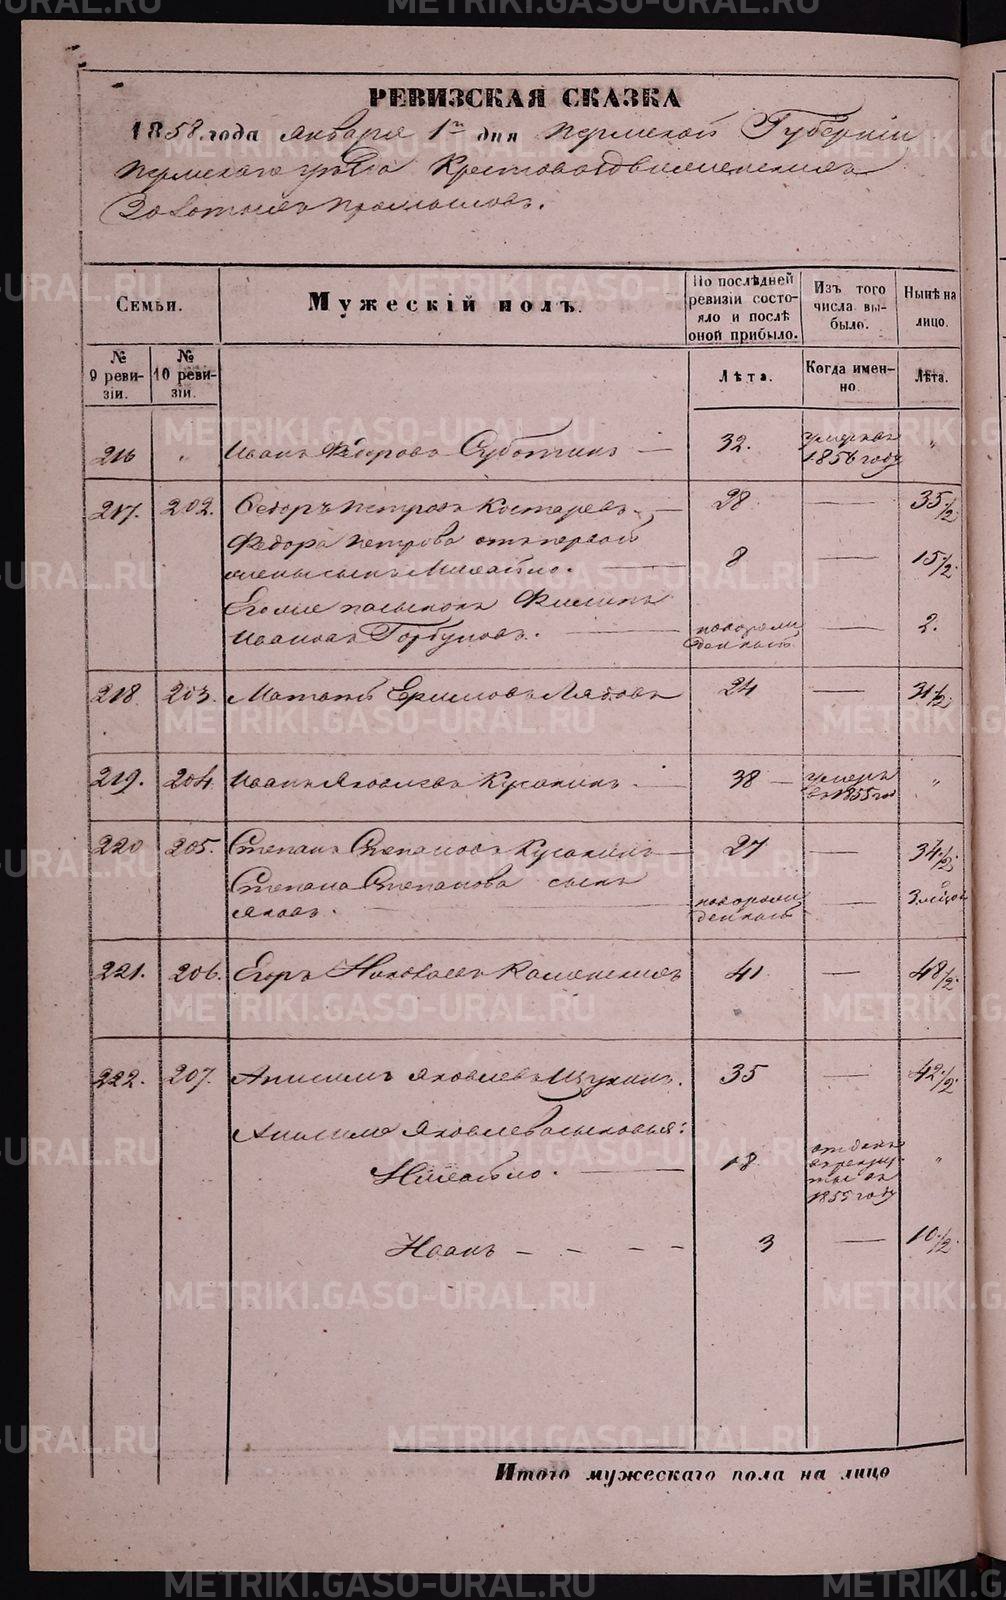 РЕВИЗСКАЯ СКАЗКА
1858 года января 1го дня Пермской Губернiи
Пермскаго уѣзда Крестовоздвиженскихъ
Золотыхъ промысловъ.
Семьи.
Мужескiй полъ.
По послѣдней ревизiи состояло и послѣ оной прибыло.
Изъ того числа выбыло.
Нынѣ на лицо.
№ 9 ревизiи.
№ 10 ревизiи.
Лѣта.
Когда именно.
Лѣта.
216 " Иванъ Ѳедоровъ Суботинъ — 32. умеръ въ 1856 году "
217. 202. Ѳедоръ Петровъ Костаревъ — 28 — 35 1/2.
Ѳедора Петрова отъ первой
жены сынъ Михайло. — 8 — 15 1/2.
Егоже пасынокъ Филипъ
Ивановъ Горбуновъ. — новорожденный — 2.
218 203. Матвѣй Ефимовъ Лядовъ 24 — 31 1/2.
219. 204 Иванъ Яковлевъ Кусакинъ. — 38 — умеръ въ 1855 год "
220 205. Степанъ Степановъ Кусакинъ — 27 — 34 1/2.
Степана Степанова сынъ
Яковъ. — новорожденный — 3 мѣсяц
221. 206. Егоръ Каменскихъ 41 — 48 1/2.
222. 207. Анисимъ Яковлевъ Щукинъ. 35 — 42 1/2.
Анисима Яковлева сыновья:
Михайло. — 18 отданъ въ рекруты въ 1855 году "
Иванъ — — — — 3 — 10 1/2.
Итого мужескаго пола на лицо
METRIKI.GASO-URAL.RU